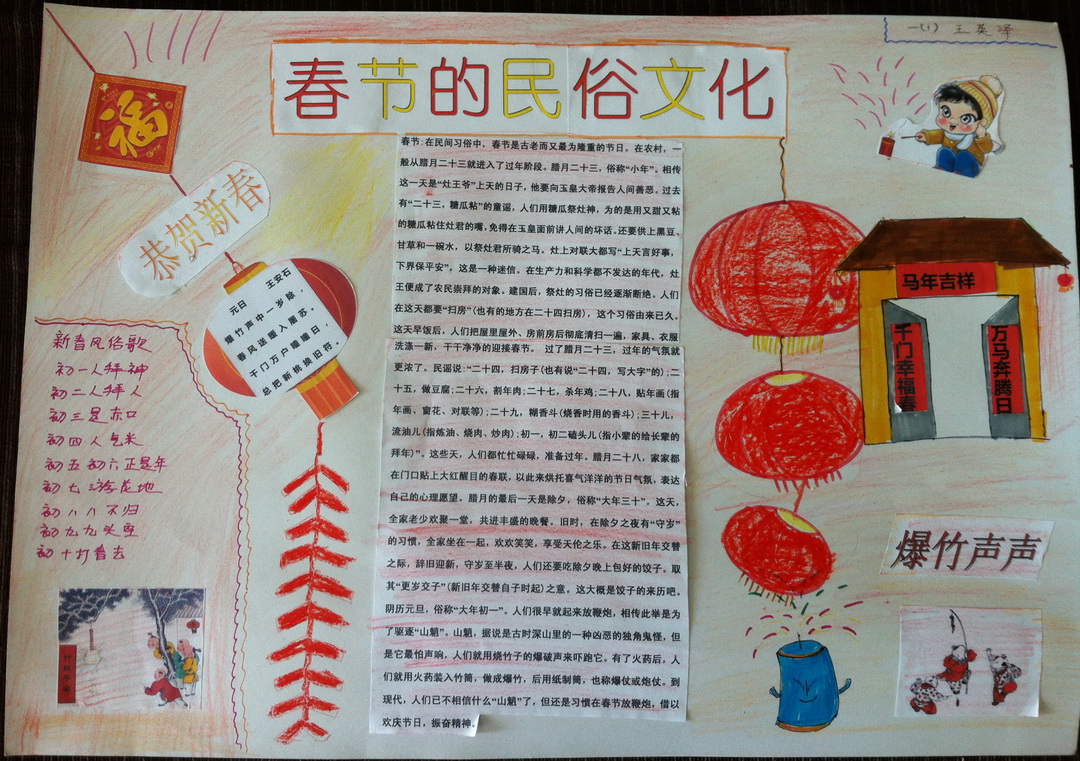 一(1) 王英泽
春节的民俗文化
福
恭贺新春
元日 王安石
爆竹声中一岁除,
春风送暖入屠苏。
千门万户曈曈日,
总把新桃换旧符。
新春风俗歌
初一人拜神
初二人拜人
初三是赤口
初四人乞米
初五初六正是年
初七游花地
初八八不归
初九九头空
初十打春去
春节:在民间习俗中,春节是古老而又最为隆重的节日。在农村,一
般从腊月二十三就进入了过年阶段。腊月二十三,俗称“小年”。相传
这一天是“灶王爷”上天的日子,他要向玉皇大帝报告人间善恶。过去
有“二十三,糖瓜粘”的童谣,人们用糖瓜祭灶神,为的是用又甜又粘
的糖瓜粘住灶君的嘴,免得在玉皇面前讲人间的坏话,还要供上黑豆、
甘草和一碗水,以祭灶君所骑之马。灶上对联大都写“上天言好事,
下界保平安”,这是一种迷信。在生产力和科学都不发达的年代,灶
王便成了农民崇拜的对象。建国后,祭灶的习俗已经逐渐断绝。人们
在这天都要“扫房”(也有的地方在二十四扫房),这个习俗由来已久。
这天早饭后,人们把屋里屋外、房前房后彻底清扫一遍,家具、衣服
洗涤一新,干干净净的迎接春节。 过了腊月二十三,过年的气氛就
更浓了。民谣说:“二十四,扫房子(也有说“二十四,写大字”的);二
十五,做豆腐;二十六,割年肉;二十七,杀年鸡;二十八,贴年画(指
年画、窗花、对联等);二十九,糊香斗(烧香时用的香斗);三十儿,
流油儿(指炼油、烧肉、炒肉);初一,初二磕头儿(指小辈的给长辈的
拜年)”。这些天,人们都忙忙碌碌,准备过年。腊月二十八,家家都
在门口贴上大红醒目的春联,以此来烘托喜气洋洋的节日气氛,表达
自己的心理愿望。腊月的最后一天是除夕,俗称“大年三十”。这天,
全家老少欢聚一堂,共进丰盛的晚餐。旧时,在除夕之夜有“守岁”
的习惯,全家坐在一起,欢欢笑笑,享受天伦之乐。在这新旧年交替
之际,辞旧迎新,守岁至半夜,人们还要吃除夕晚上包好的饺子。取
其“更岁交子”(新旧年交替自子时起)之意。这大概是饺子的来历吧。
阴历元旦,俗称“大年初一”。人们很早就起来放鞭炮,相传此举是为
了驱逐“山魈”。山魈,据说是古时深山里的一种凶恶的独角鬼怪,但
是它最怕声响,人们就用烧竹子的爆破声来吓跑它。有了火药后,人
们就用火药装入竹筒,做成爆竹,后用纸制筒,也称爆仗或炮仗。到
现代,人们已不相信什么“山魈”了,但还是习惯在春节放鞭炮,借以
欢庆节日,振奋精神。
马年吉祥
千门幸福春
万马奔腾日
爆竹声声